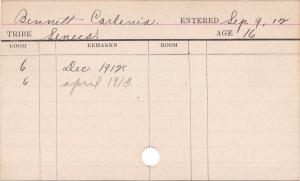 Bennett Carlenia. ENTERED Sep. 9, 12
TRIBE Seneca. AGE 16
ROOM REMARKS ROOM
6 Dec 1912
6 april 1913